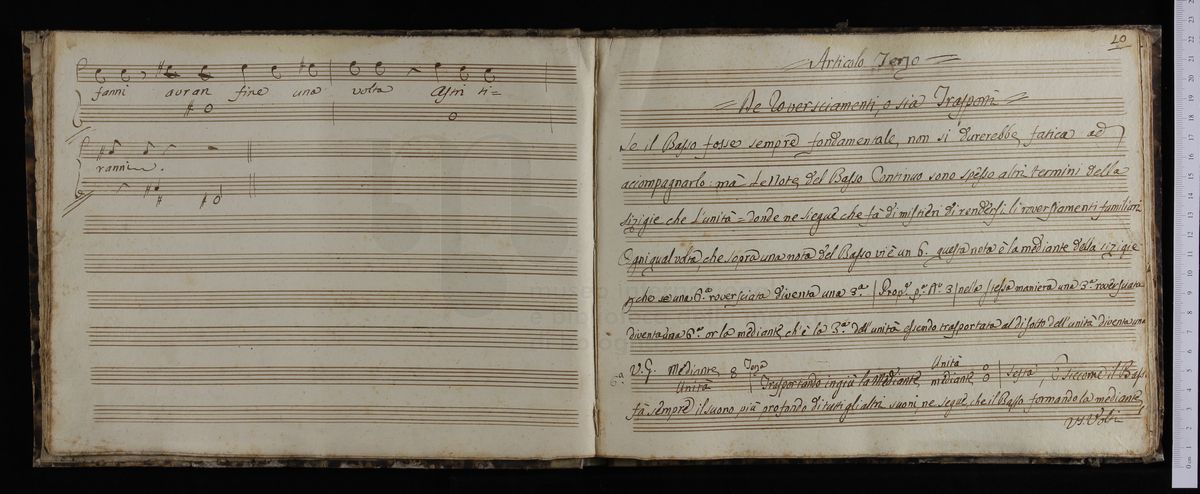 fanni avran fine una volta Astri ti=
ranni.
10
Articolo Terzo
De Roversciamenti, o sia Trasporti
Se il Basso fosse sempre fondamentale, non si durerebbe fatica ad
accompagnarlo: mà le Note del Basso Continuo sono spesso altri termini della
sizigie che l'unità = donde ne siegue che fà di mistieri di rendersi li roversciamenti familiari
Ogni qual volta, che sopra una nota del Basso vi è un 6. questa nota è la mediante della sizigie
perche se una 6.a roversciata diventa una 3.a | Prop.e p.a N.o 3 | nella stessa maniera una 3.a roversciata
diventa una 6.a or la mediante ch'è la 3.a dell'unità essendo trasportata al disotto dell'unità diventa una
6.a V. G. Mediante 8 Terza Unità
Unità | Trasportando ingiù la Mediante mediante | Sesta, E siccome il Basso
fà sempre il suono più profondo di tutti gli altri suoni, ne segue, che il Basso formando la mediante